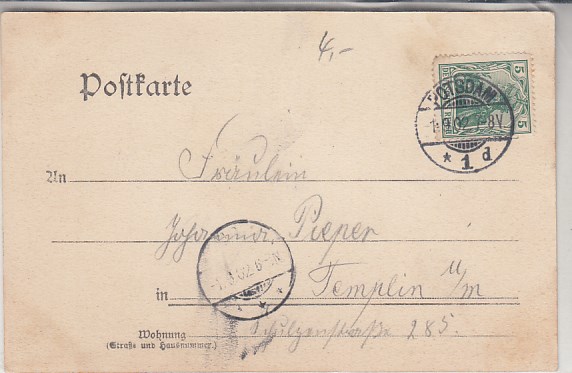 4,-
Postkarte
5 5
POTSDAM
1.9.02. 7-8V.
* 1 d
An Fräulein
Johanna Pieper
-1.9.02. 6-
in Templin U/M
Wohnung
(Straße und Hausnummer.)
Schulzenstraße 285.